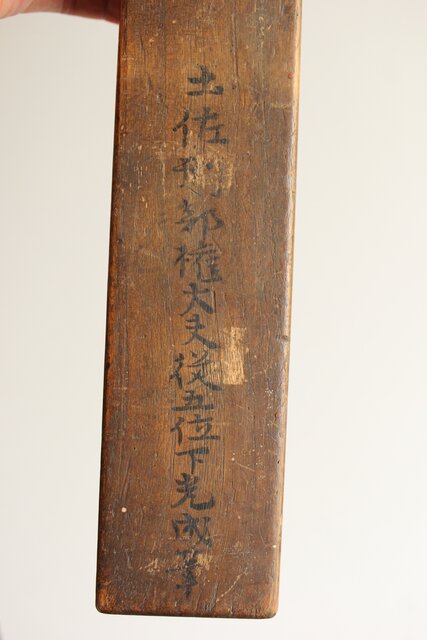 土佐刑部権大夫従五位下光成筆